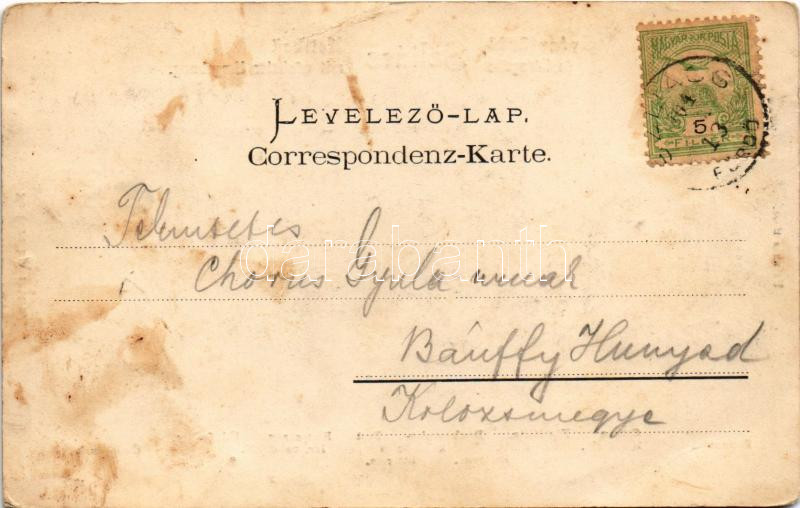 MAGYAR KIR. POSTA
5
LEVELEZŐ-LAP.
Correspondenz-Karte.
Tekintetes
Chorus Gyula urnak
darabanth
Bánffy Hunyad
Kolozsmegye